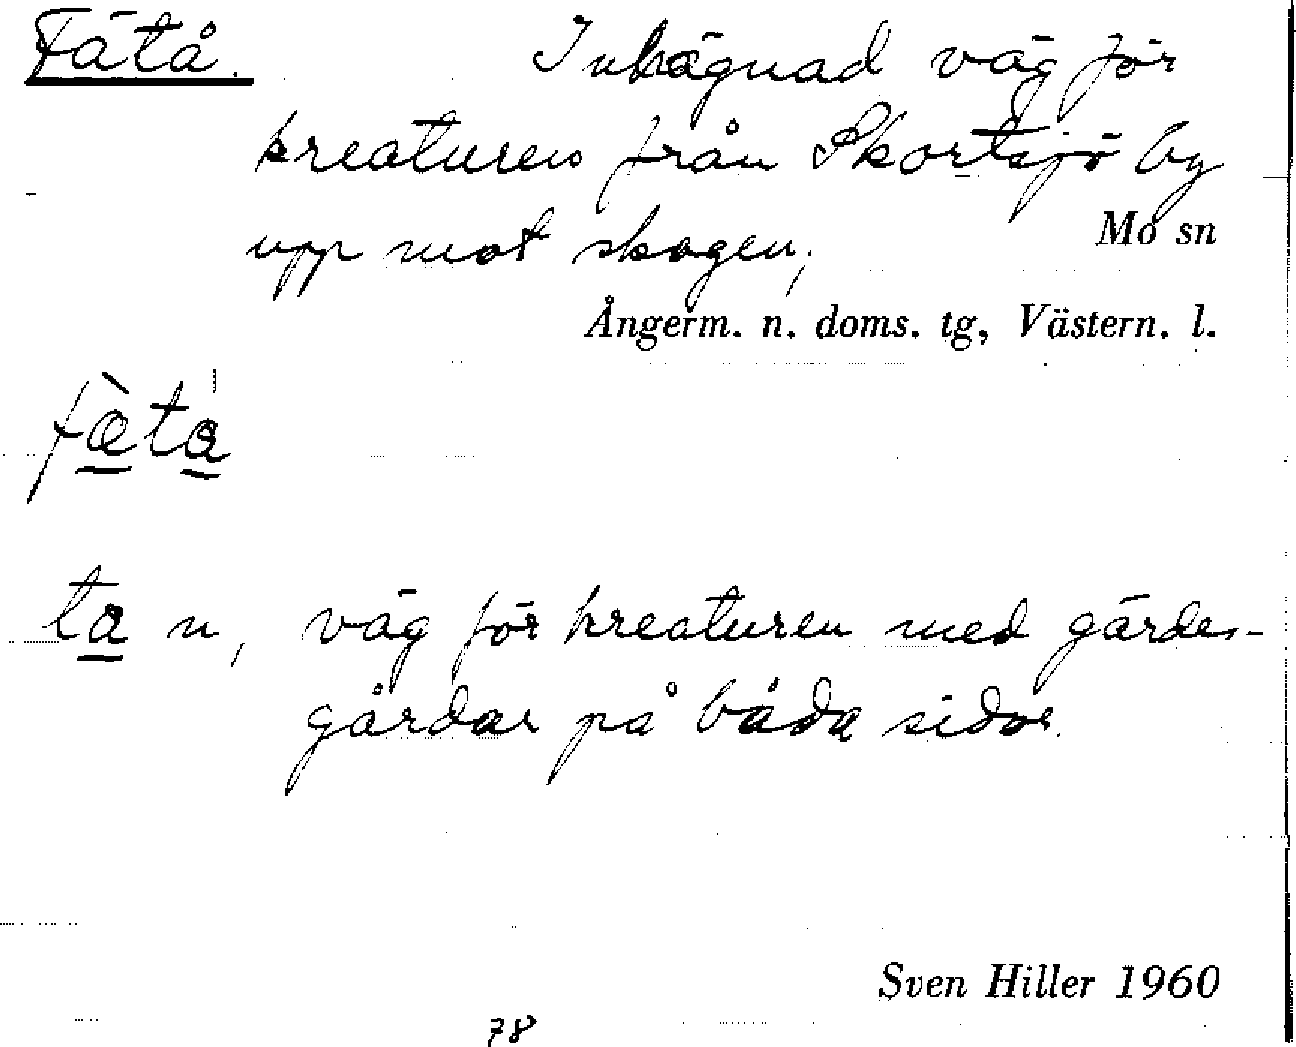 Fätå. Inhägnad väg för
kreaturen från Skortsjö by
upp mot skogen,
Mo sn
Ångerm. n. doms. tg, Västern. l.
fὰta
ta n, väg för kreaturen med gärdes-
gårdar på båda sidor.
Sven Hiller 1960
78